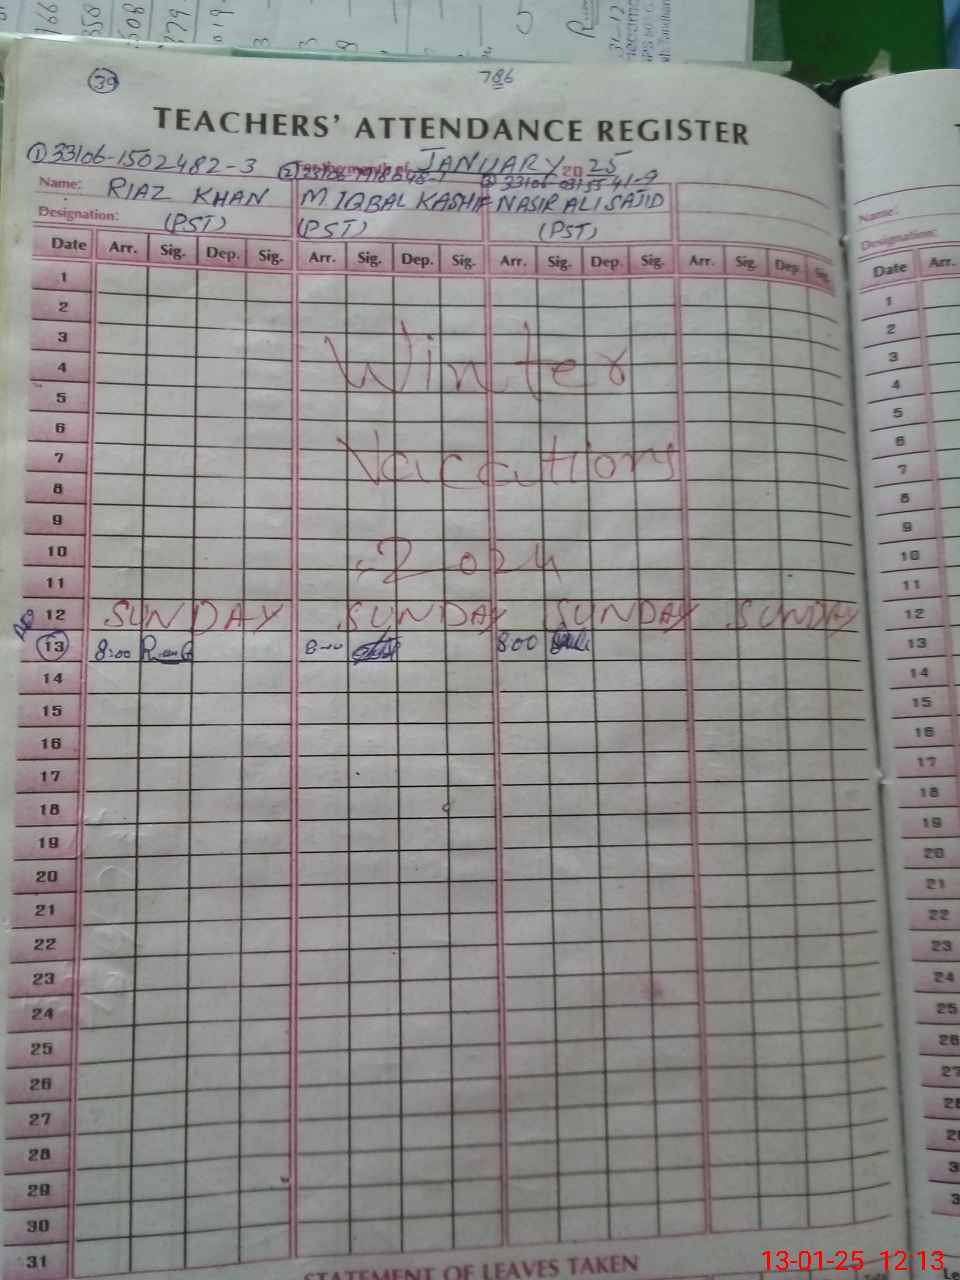 39
786
TEACHERS' ATTENDANCE REGISTER
① 33106-1502482-3 ② For the month of JANUARY 2025
③ 33106-
Name: RIAZ KHAN M. IQBAL KASHIF NASIR ALI SAJID
Designation: (PST) (PST) (PST)
Date Arr. Sig. Dep. Sig. Arr. Sig. Dep. Sig. Arr. Sig. Dep. Sig. Arr. Sig. Dep. Sig.
1
2
3
4 Winter
5
6
7 Vacations
8
9
10 2024
11
12 SUNDAY SUNDAY SUNDAY SUNDAY
13 8:00 8:00 800
14
15
16
17
18
19
20
21
22
23
24
25
26
27
28
29
30
31
STATEMENT OF LEAVES TAKEN
Name:
Designation:
Date Arr.
1
2
3
4
5
6
7
8
9
10
11
12
13
14
15
16
17
18
19
20
21
22
23
24
25
26
27
13-01-25 12:13